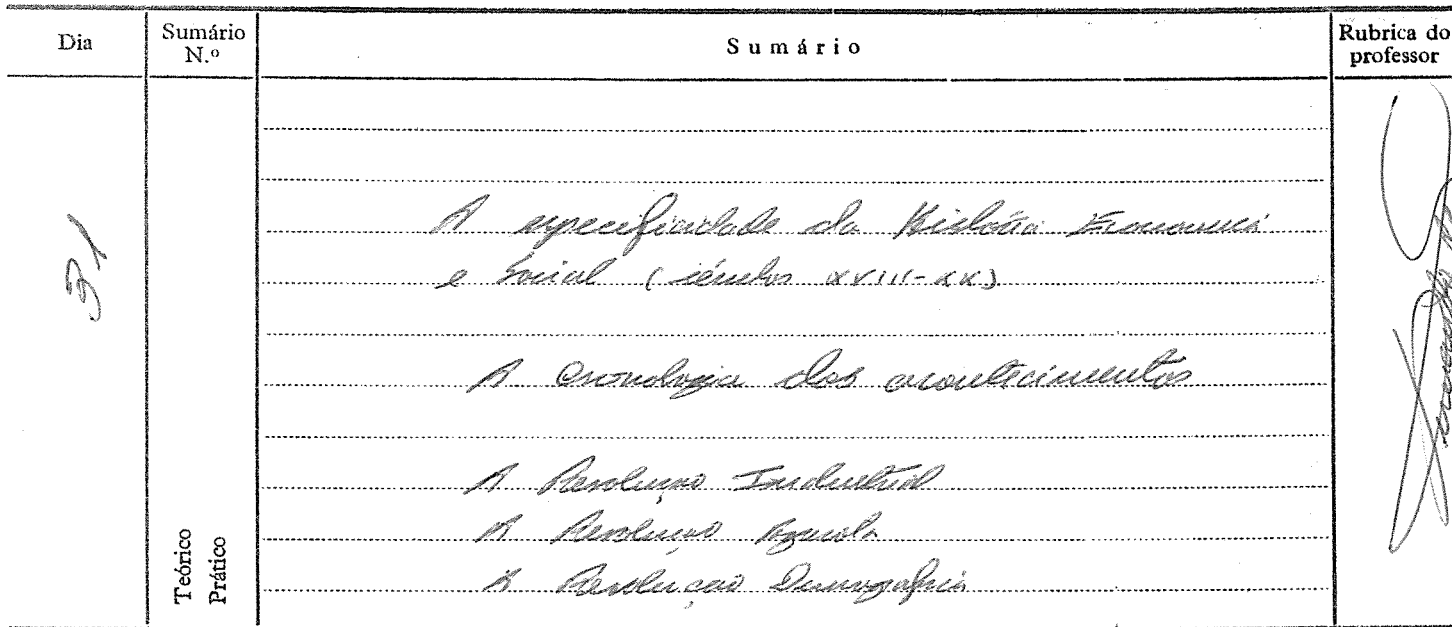 Dia
Sumário
N.º
Sumário
Rubrica do
professor
31
A especificidade da História Económica
e Social (séculos XVIII-XX)
A Cronologia dos acontecimentos
A Revolução Industrial
A Revolução Agrícola
A Revolução Demográfica
Teórico
Prático